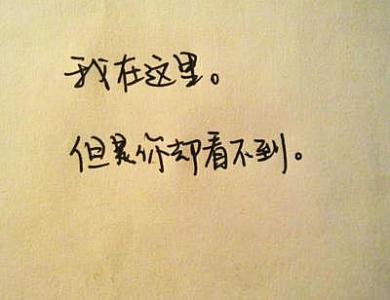 我在这里。
但是你却看不到。